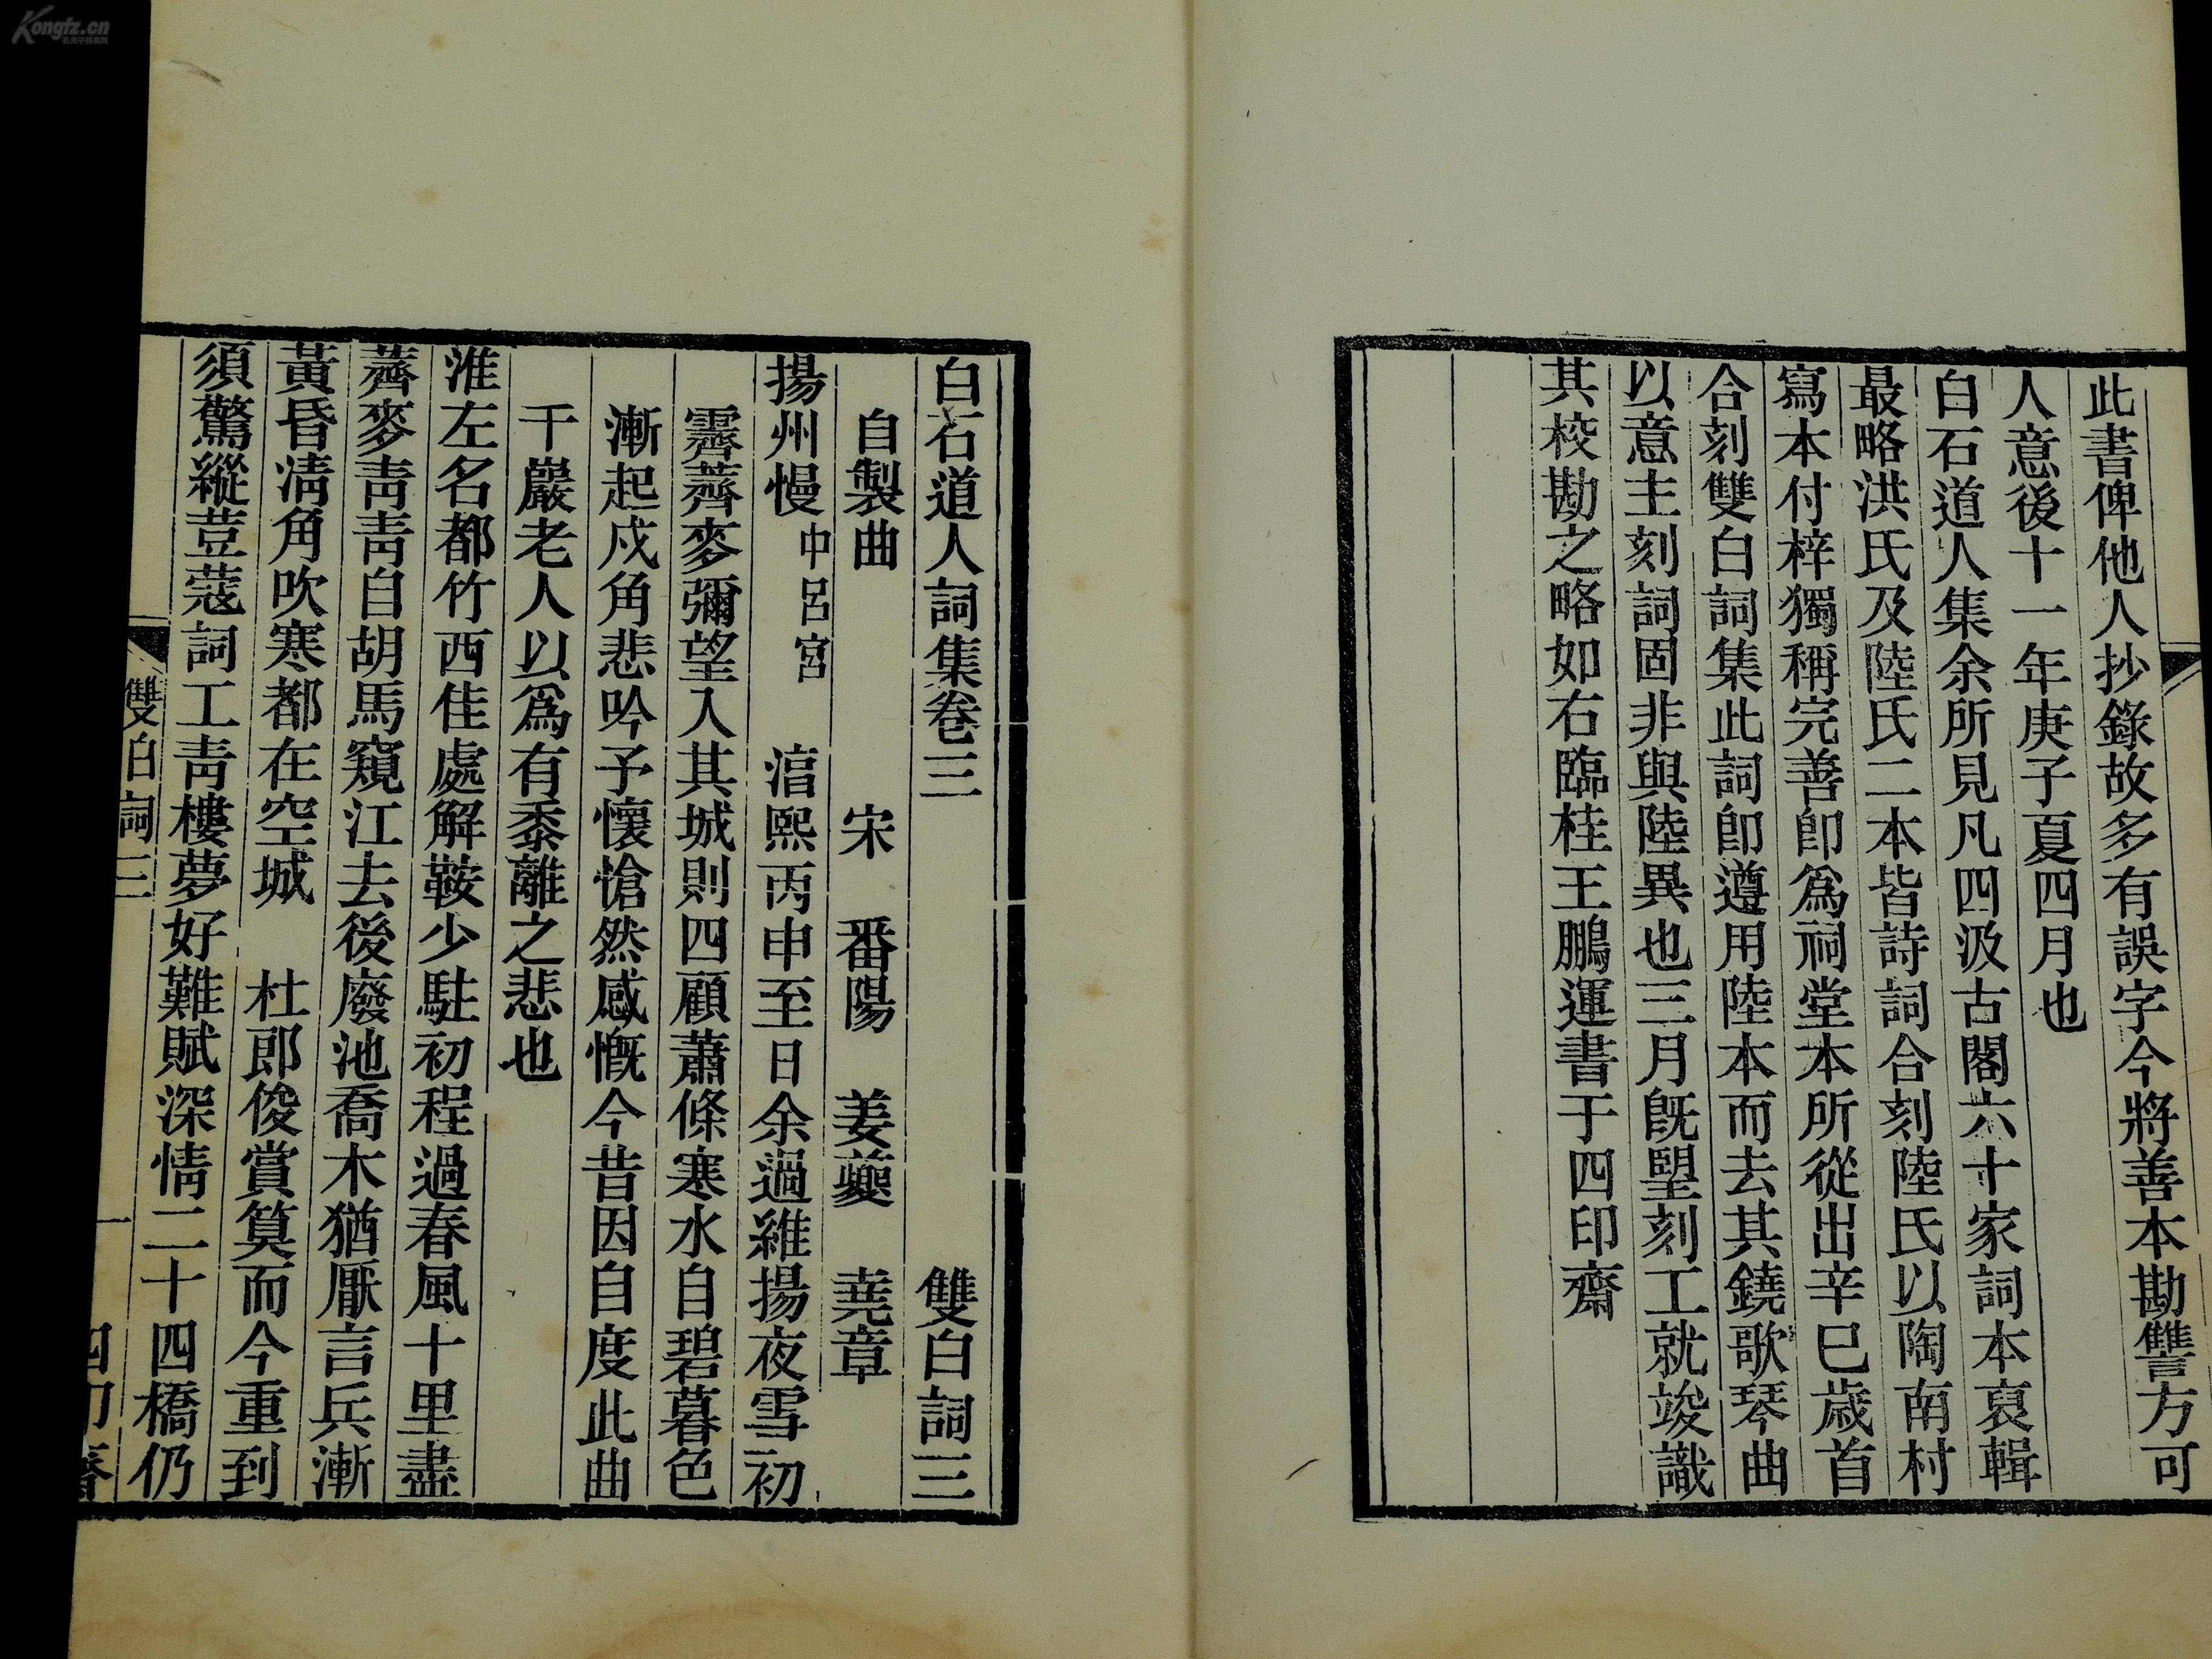 此書俾他人抄錄故多有誤字今將善本勘讐方可
人意後十一年庚子夏四月也
白石道人集余所見凡四汲古閣六十家詞本裒輯
最略洪氏及陸氏二本皆詩詞合刻陸氏以陶南村
寫本付梓獨稱完善卽爲祠堂本所從出辛巳歲首
合刻雙白詞集此詞卽遵用陸本而去其鐃歌琴曲
以意主刻詞固非與陸異也三月旣朢刻工就竣識
其校勘之略如右臨桂王鵬運書于四印齋
白石道人詞集卷三 雙白詞三
自製曲 宋 番陽 姜夔 堯章
揚州慢 中呂宮 湻熙丙申至日余過維揚夜雪初
霽薺麥彌望入其城則四顧蕭條寒水自碧暮色
漸起戍角悲吟予懷愴然感慨今昔因自度此曲
千巖老人以爲有黍離之悲也
淮左名都竹西佳處解鞍少駐初程過春風十里盡
薺麥靑靑自胡馬窺江去後廢池喬木猶厭言兵漸
黃昏淸角吹寒都在空城 杜郎俊賞算而今重到
須驚縱荳蔻詞工靑樓夢好難賦深情二十四橋仍
雙白詞三 一 四印齋
Kongfz.cn
孔夫子拍卖网